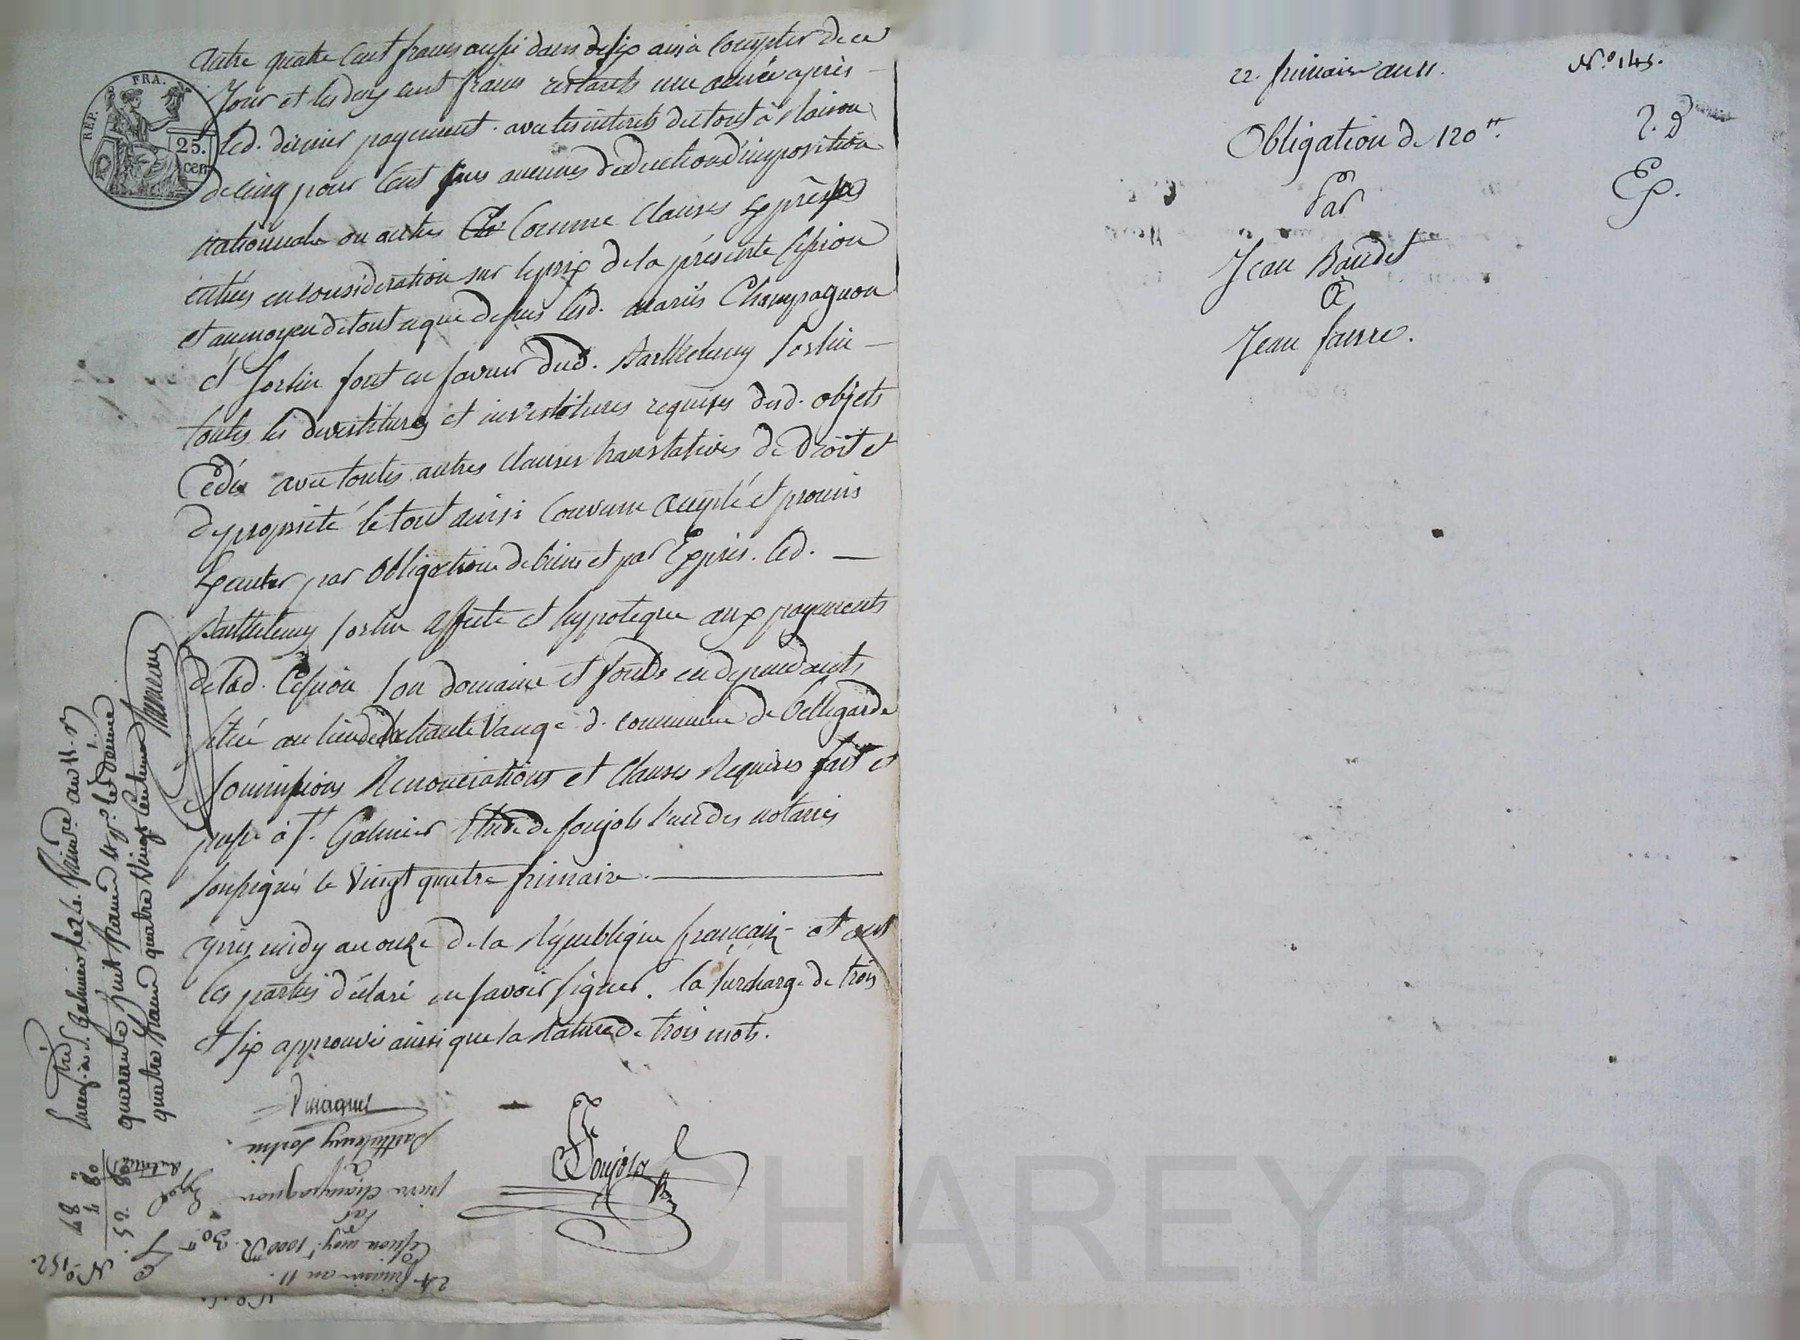 REP. FRA.
25. cen
autre quatre cent francs aussi dans de six ans a compter de ce
jour et les deux cent francs restants une année après
led. dernier payement. avec les interets du tout à Raison
de cinq pour cent sans aucunes deduction d'imposition
nationnale ou autres Comme Clauses Expresses
entrées en considération sur le prix de la présente Cession
et aumoyen de tout ce que dessus lesd. mariés Champagnon
et Sorlin font en faveur dud. Barthelemy Sorlin
toutes les devestitures et investitures requises desd. objets
Cédés avec toutes autres clauses translatives de droit et
de propriété le tout ainsi Convenu accepté et promis
par obligation de biens et par Exprès. Led.
Barthelemy Sorlin affecte et hypoteque aux payements
de lad. Cession son domaine et fonds en dependants
situé au lieu de commune de Bellegarde
Soumissions Renonciations et Clauses Requises fait et
passé à St. Galmier Etude de foujols l'un des notaires
soussignés le vingt quatre frimaire.
après midy an onze de la République française et ont
les parties déclaré ne savoir signer. la surcharge de trois
et six approuvé ainsi que la rature de trois mots.
Foujols
Enreg. à St. Galmier le 24. frimre. an 11.
quarante huit francs
quatre francs quatre vingt centimes
48 "
4 80
52. 80
N.o 152.
24 frimaire an 11.
Cession moy.t 1000 R. 30
Par
pierre Champagnon
à
Barthelemy Sorlin.
22. frimaire an 11. N.o 145.
Obligation de 120 tt.
2. D
Ex.
Par
Jean Baudet
à
Jean faure.
CHAREYRON